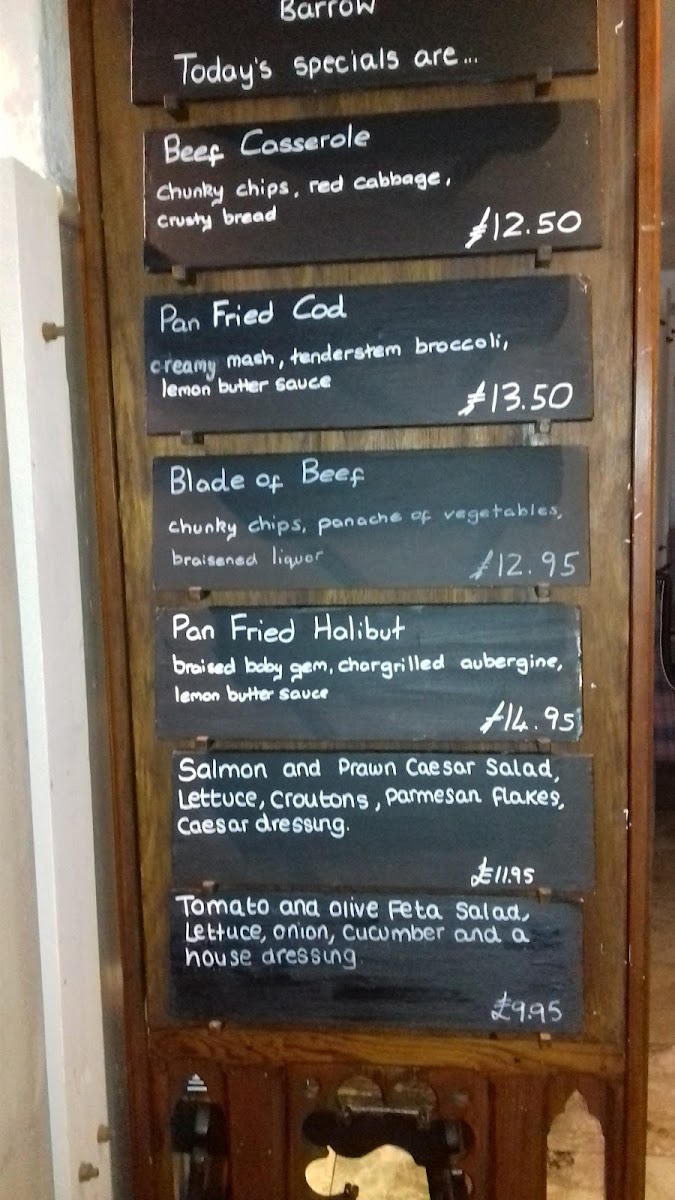 Barrow
Today's specials are...
Beef Casserole
chunky chips, red cabbage,
crusty bread
£12.50
Pan Fried Cod
creamy mash, tenderstem broccoli,
lemon butter sauce
£13.50
Blade of Beef
chunky chips, panache of vegetables,
braisened liquor
£12.95
Pan Fried Halibut
braised baby gem, chargrilled aubergine,
lemon butter sauce
£14.95
Salmon and Prawn Caesar Salad,
Lettuce, Croutons, Parmesan Flakes,
Caesar dressing.
£11.95
Tomato and Olive Feta Salad,
Lettuce, onion, Cucumber and a
house dressing
£9.95